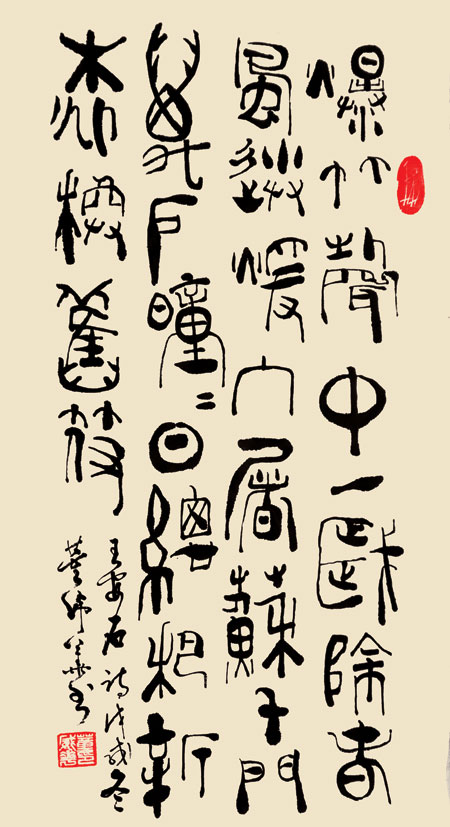 爆竹聲中一歲除春
風送暖入屠蘇千門
萬戶曈〻日總把新
桃換舊符
王安石詩戊戌冬
董書